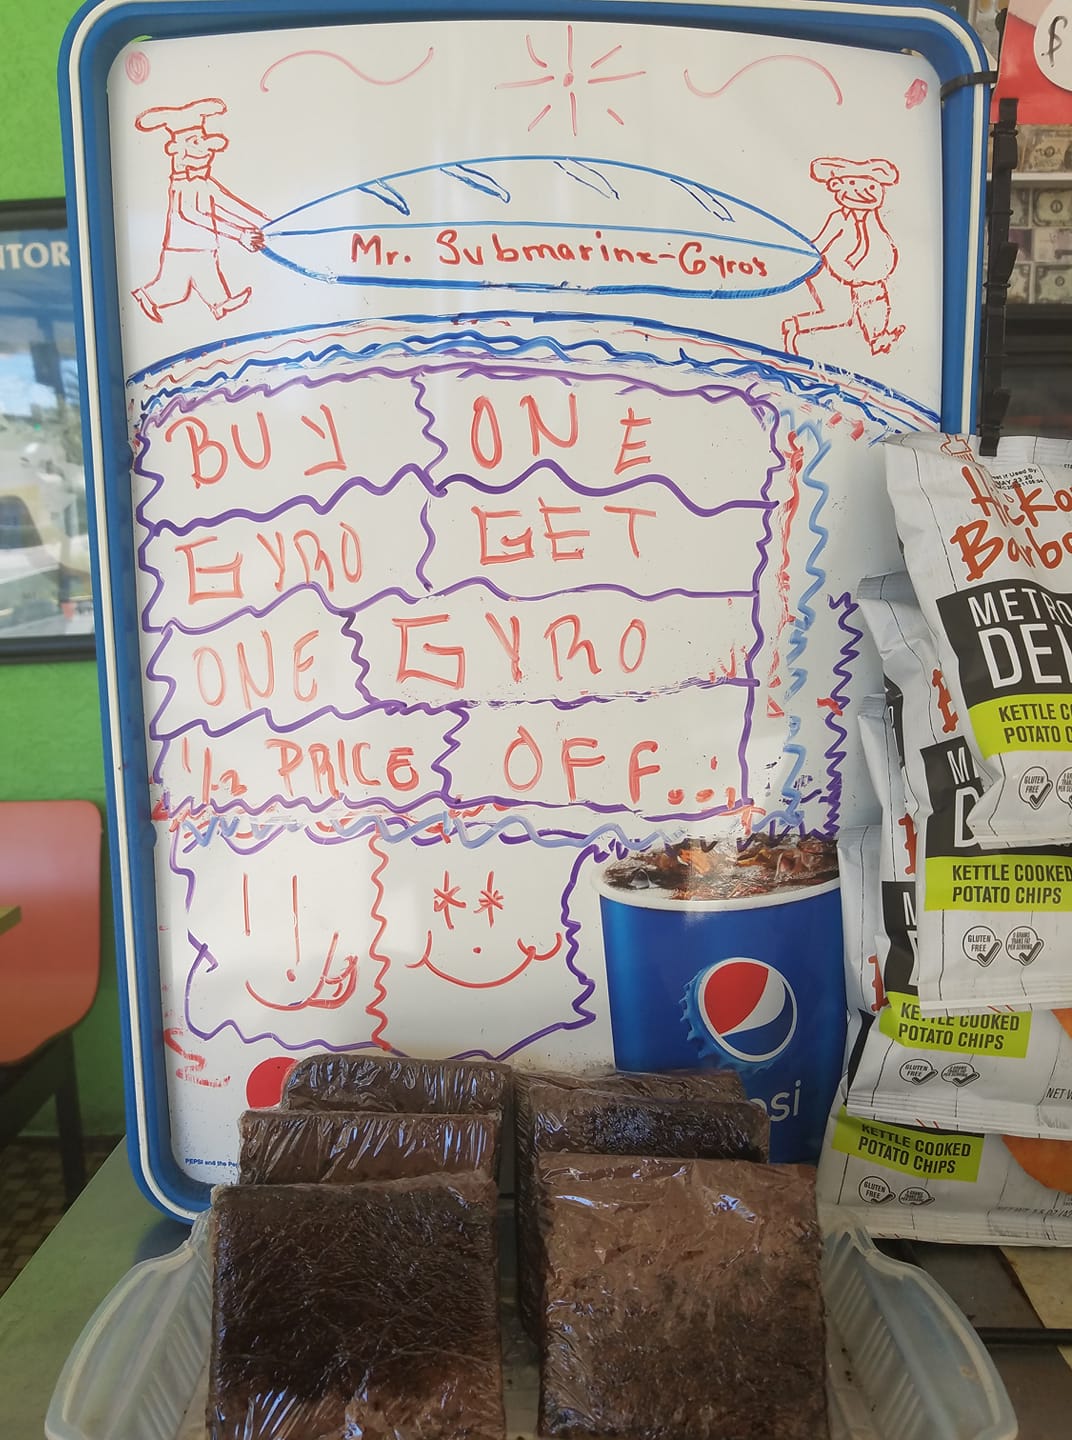 NTOR
Mr. Submarine-Gyros
BUY ONE
GYRO GET
ONE GYRO
1/2 PRICE OFF...
METRO
DEL
KETTLE CO
POTATO C
GLUTEN FREE
KETTLE COOKED
POTATO CHIPS
GLUTEN FREE
0 GRAMS TRANS FAT PER SERVING
KETTLE COOKED
POTATO CHIPS
GLUTEN FREE
KETTLE COOKED
POTATO CHIPS
GLUTEN FREE
psi
PEPSI and the Pe